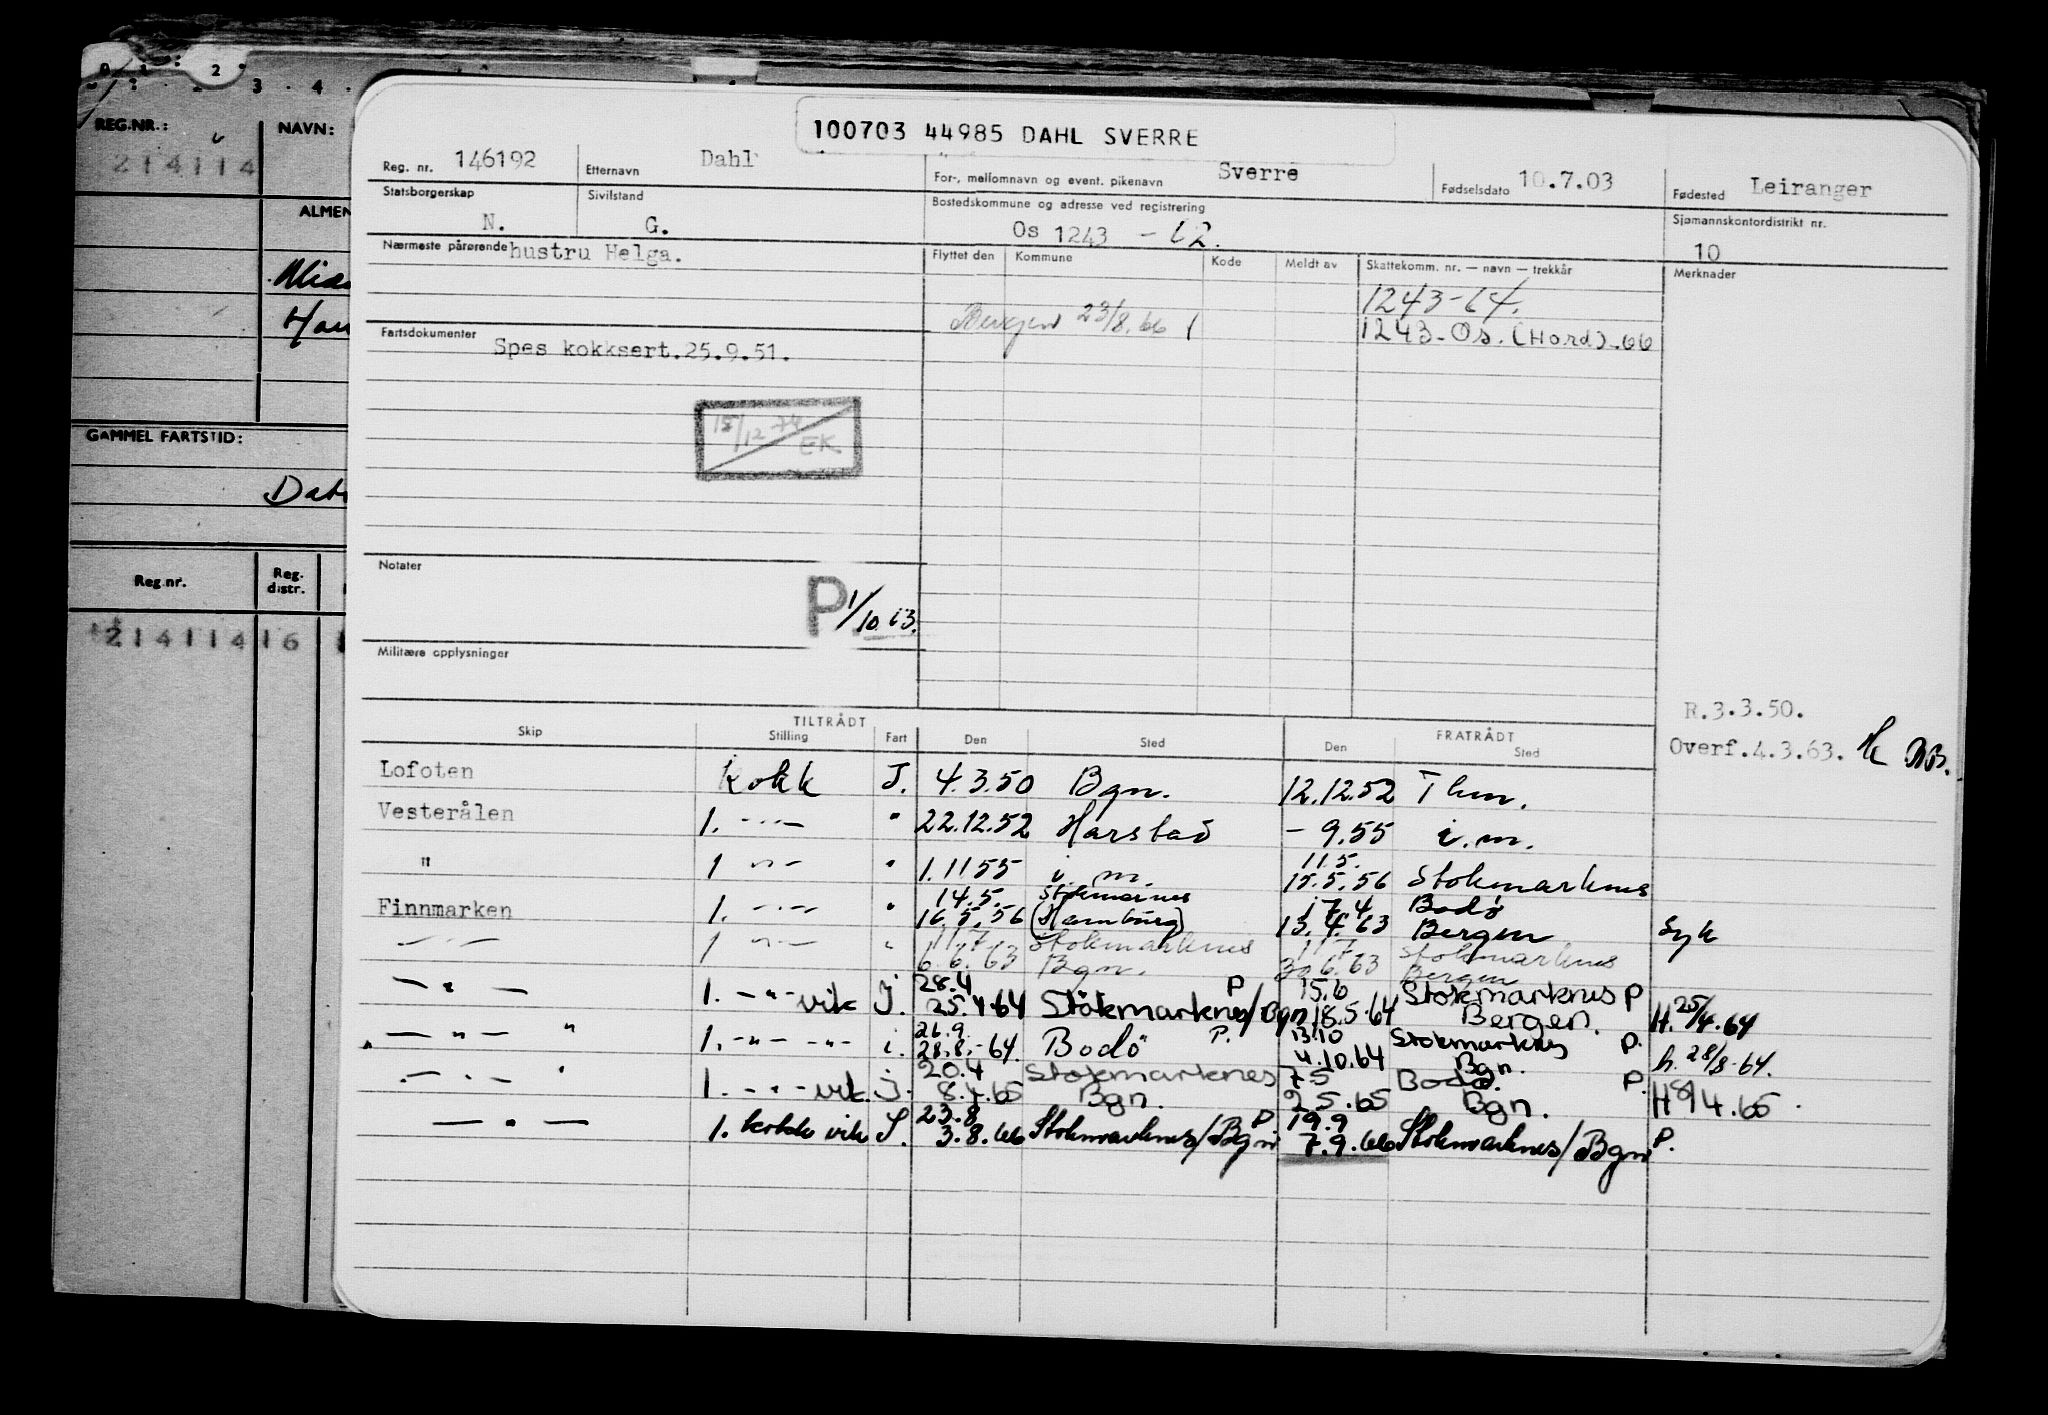 2
3 . 4 .
REG.NR.:
NAVN:
214114
ALMEN
GAMMEL FARTSTID:
Reg.nr.
Reg. distr.
214114 16
100703 44985 DAHL SVERRE
Reg. nr. 146192 Etternavn Dahl For-, mellomnavn og event. pikenavn Sverre Fødselsdato 10.7.03 Fødested Leiranger
Statsborgerskap N. Sivilstand G. Bostedskommune og adresse ved registrering Os 1243 - 62. Sjømannskontordistrikt nr. 10
Nærmeste pårørende hustru Helga. Flyttet den Kommune Kode Meldt av Skattekomm. nr. — navn — trekkår Merknader
1243-64.
Bergen 23/8.66 1243-Os.(Hord).66
Fartsdokumenter Spes kokksert.25.9.51.
15/12 74 EK
Notater P 1/10 63.
Militære opplysninger
R.3.3.50.
Overf.4.3.63.
TILTRÅDT FRATRÅDT
Skip Stilling Fart Den Sted Den Sted
Lofoten Kokk I. 4.3.50 Bgn. 12.12.52 Thm.
Vesterålen 1. -"- " 22.12.52 Harstad - 9.55 i.m.
11.5.
" 1 -"- " 1.11 55 i. m. 15.5.56 Stokmarknes
14.5. Stokmarknes 17.4 Bodø
Finnmarken 1. -"- " 16.5.56 (Hamburg) 13.4.63 Bergen Syk
11/7 Stokmarknes 11/7 Stokmarknes
-"- 1 -"- " 6.6.63 Bgn. 30.6.63 Bergen
28.4 P 15.6 Stokmarknes P
-"- 1. -"- vik I. 25.4 64 Stokmarknes/Bgn 18.5.64 Bergen. H. 25/4.64
26.9. P. 13.10 Stokmarknes P.
-"- " 1. -"- -"- i. 28.8.-64. Bodö 4.10.64 Bgn. h. 28/8-64.
20.4 Stokmarknes 7.5 Bodø. P.
-"- " 1. -"- vik. I. 8.4.65 Bgn. 2.5.65 Bgn. H 8/4.65.
23.8 P 19.9 P.
-"- 1. kokk vik I. 3.8.66 Stokmarknes/Bgn 7.9.66 Stokmarknes/Bgn